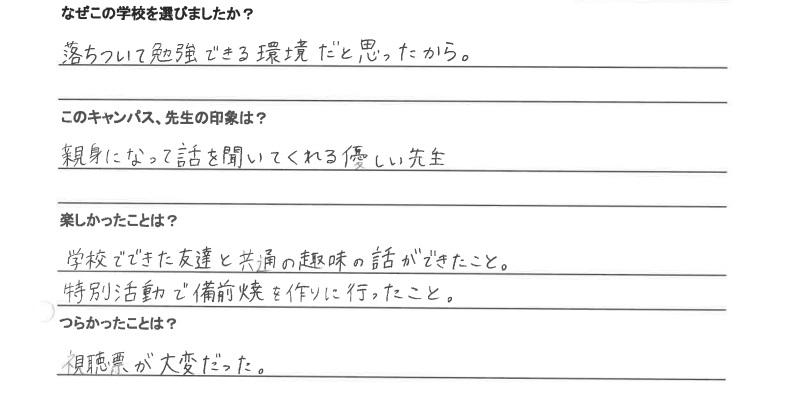 なぜこの学校を選びましたか？
落ちついて勉強できる環境だと思ったから。
このキャンパス、先生の印象は？
親身になって話を聞いてくれる優しい先生
楽しかったことは？
学校でできた友達と共通の趣味の話ができたこと。
特別活動で備前焼を作りに行ったこと。
つらかったことは？
視聴票が大変だった。